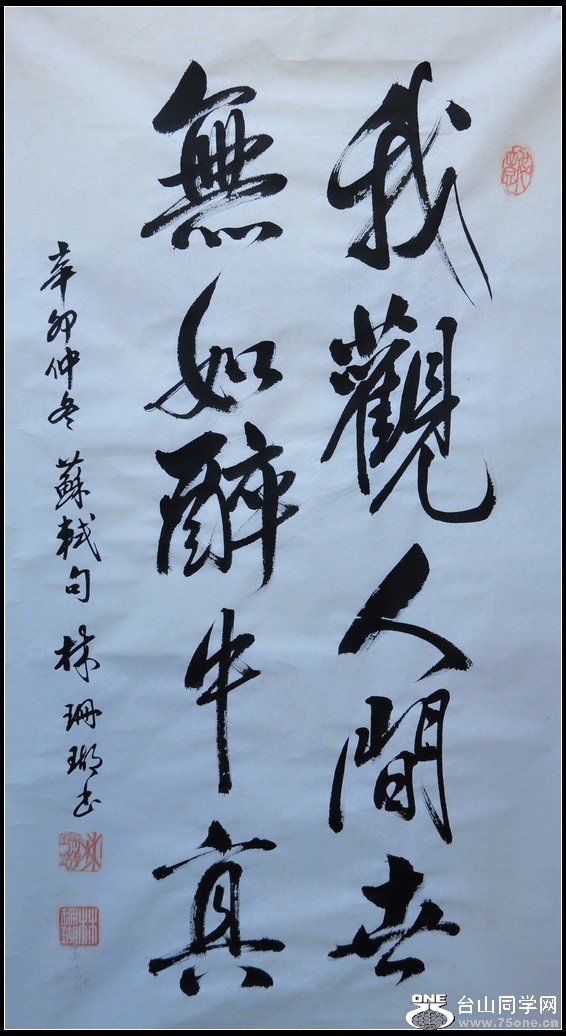 我觀人間世
無如醉中真
辛卯仲冬 蘇軾句 林珊瑚书
ONE
台山同学网
www.75one.cn